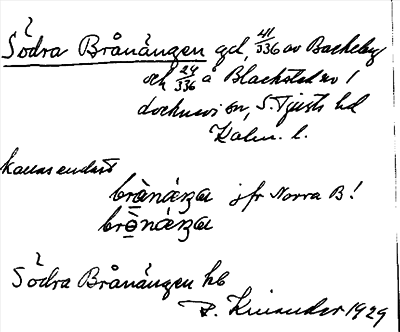 Södra Brånängen gd, 41/336 av Backeby
och 24/336 å Blackstad nr 1
socken, S. Tjusts hd
Kalm. l.
kallas endast
brånäŋa jfr Norra B!
brönäŋa
Södra Brånängen hb
R. Kinander 1929